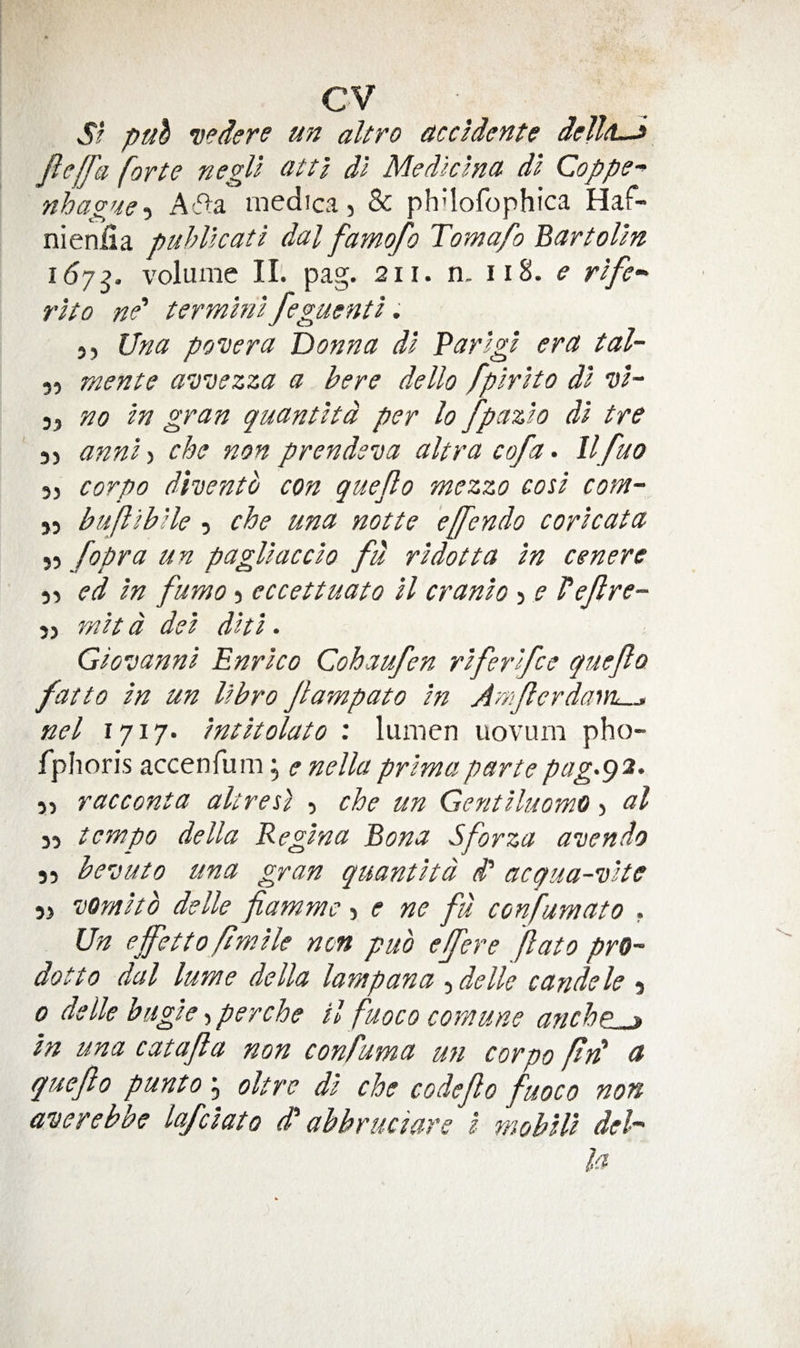 CV
Si può vedere un altro accidente della
ſteſſa ſorte negli atti di Medicina di Coppe-
nhague, Acta medica, & philoſophica Haf-
nienſia publicati dal famoſo Tomaſo Bartolin
1673. volume II. pag. 211. n. 118. e rife-
rito ne' termini ſeguenti.
„ Una povera Donna di Parigi era tal-
„ mente avvezza a bere dello ſpirito di vi-
„ no in gran quantità per lo ſpazio di tre
„ anni, che non prendeva altra coſa. Il ſuo
„ corpo diventò con queſto mezzo così com-
„ buſtibile, che una notte eſſendo coricata
„ ſopra un pagliaccio fù ridotta in cenere
„ ed in fumo, eccettuato il cranio, e l'eſtre-
„ mità dei diti.
Giovanni Enrico Cohauſen riferiſce queſto
fatto in un libro ſtampato in Amſterdam
nel 1717. intitolato : lumen uovum pho-
ſphoris accenſum; e nella prima parte pag.92.
„ racconta altresì, che un Gentiluomo, al
„ tempo della Regina Bona Sforza avendo
„ bevuto una gran quantità d' acqua-vite
„ vomitò delle fiamme, e ne fù conſumato.
Un effetto ſimile non può eſſere ſtato pro-
dotto dal lume della lampana, delle candele,
o delle bugie, perche il fuoco comune anche
in una cataſta non conſuma un corpo ſin' a
queſto punto; oltre di che codeſto fuoco non
averebbe laſciato d' abbruciare i mobili del-
la